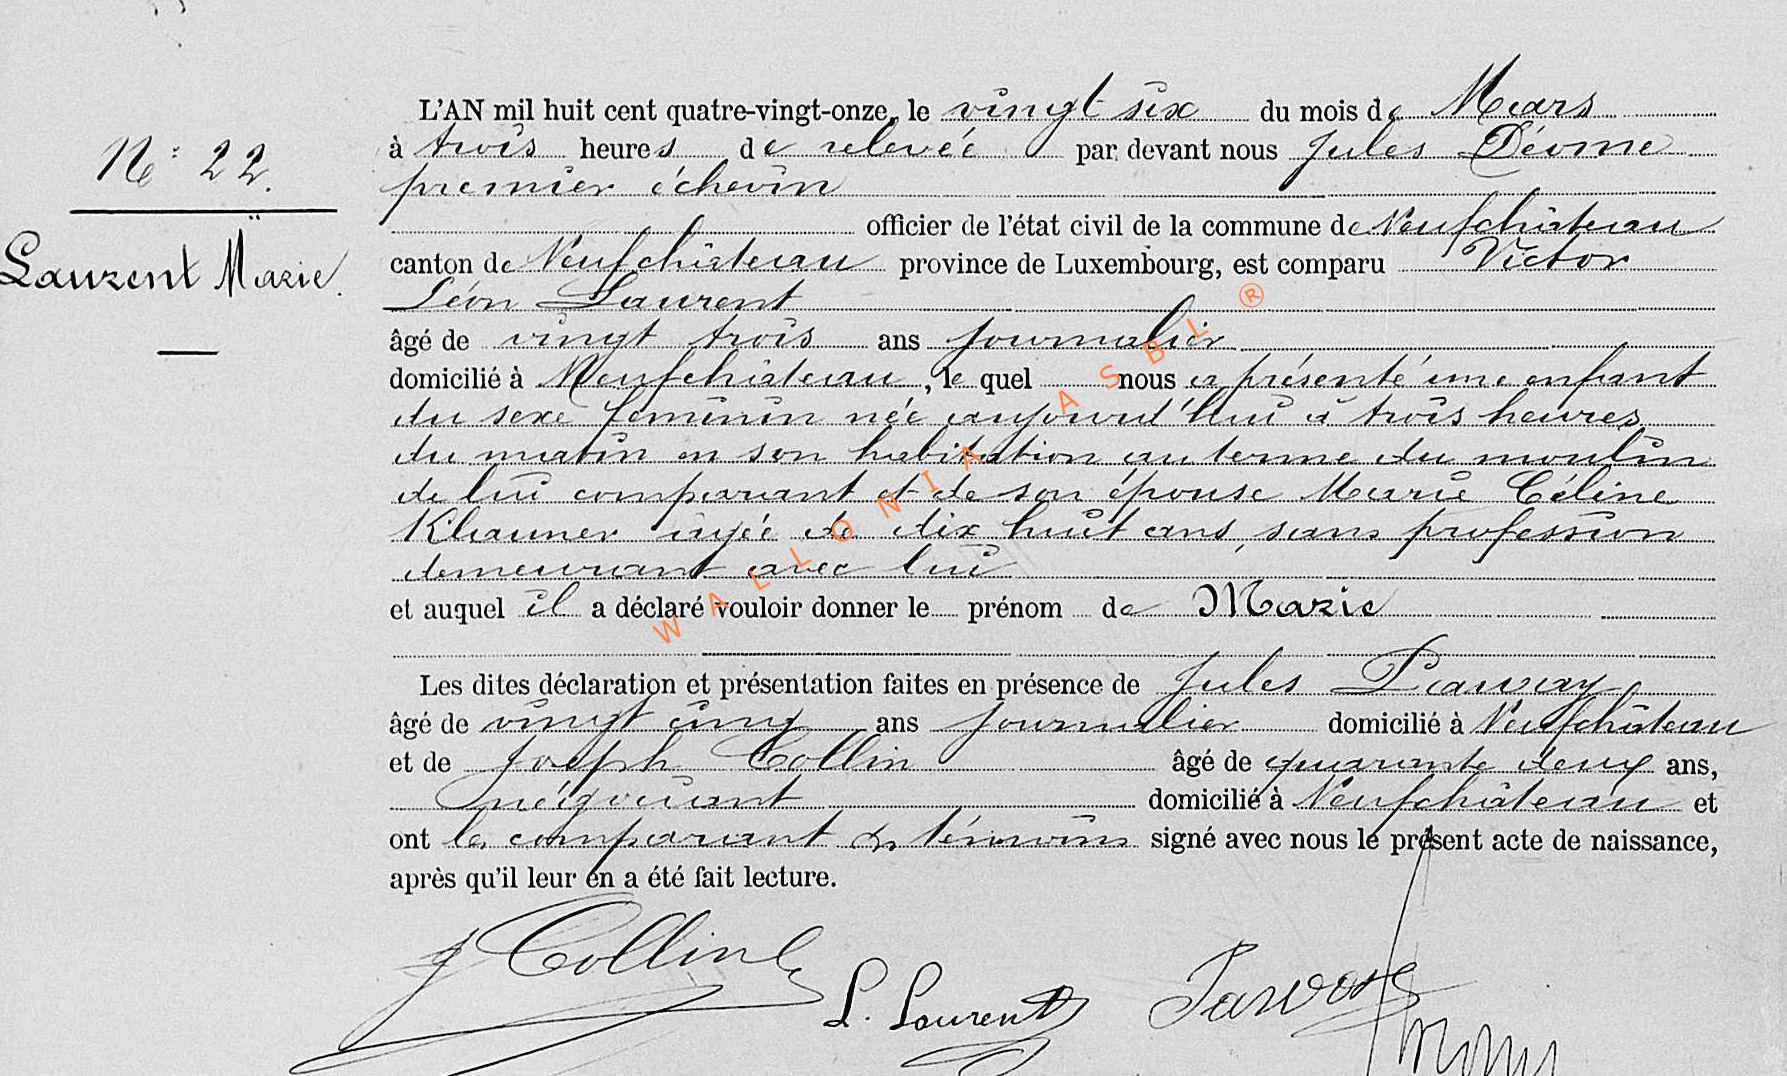 N° 22.
Laurent Marie.
L'AN mil huit cent quatre-vingt-onze, le vingt six du mois de Mars
à trois heures de relevée par devant nous Jules
premier échevin
officier de l'état civil de la commune de Neufchâteau
canton de Neufchâteau province de Luxembourg, est comparu Victor
Léon Laurent
âgé de vingt trois ans journalier
domicilié à Neufchâteau, le quel nous a présenté une enfant
du sexe féminin née aujourd'hui à trois heures
du matin en son habitation au terme du moulin
de lui comparant et de son épouse Marie Céline
Khauner agée de dix huit ans, sans profession
demeurant avec lui
et auquel il a déclaré vouloir donner le prénom de Marie
Les dites déclaration et présentation faites en présence de Jules
âgé de vingt cinq ans journalier domicilié à Neufchâteau
et de Joseph Collin âgé de quarante deux ans,
négociant domicilié à Neufchâteau et
ont le comparant & témoins signé avec nous le présent acte de naissance,
après qu'il leur en a été fait lecture.
J Collin
L. Laurent
WALLONIA ASBL ®